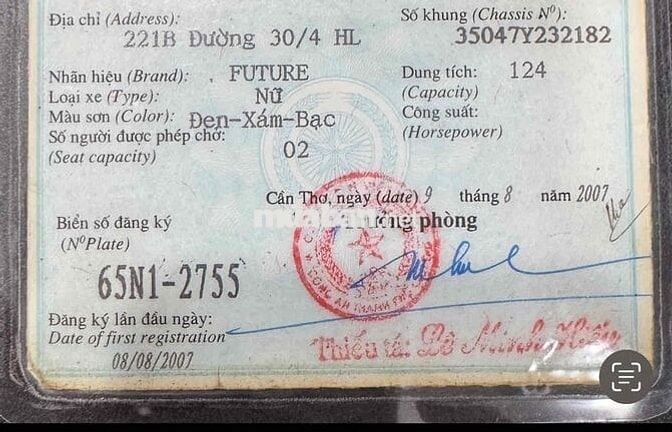 Địa chỉ (Address):
221B Đường 30/4 HL
Số khung (Chassis Nº):
35047Y232182
Nhãn hiệu (Brand): . FUTURE
Dung tích: 124
(Capacity)
Loại xe (Type): Nữ
Công suất:
(Horsepower)
Màu sơn (Color): Đen-Xám-Bạc
Số người được phép chở: 02
(Seat capacity)
Cần Thơ, ngày (date) 9 tháng 8 năm 2007
Trưởng phòng
Biển số đăng ký
(NºPlate)
65N1-2755
Đăng ký lần đầu ngày:
Date of first registration
08/08/2007
Thiếu tá: Lê Minh